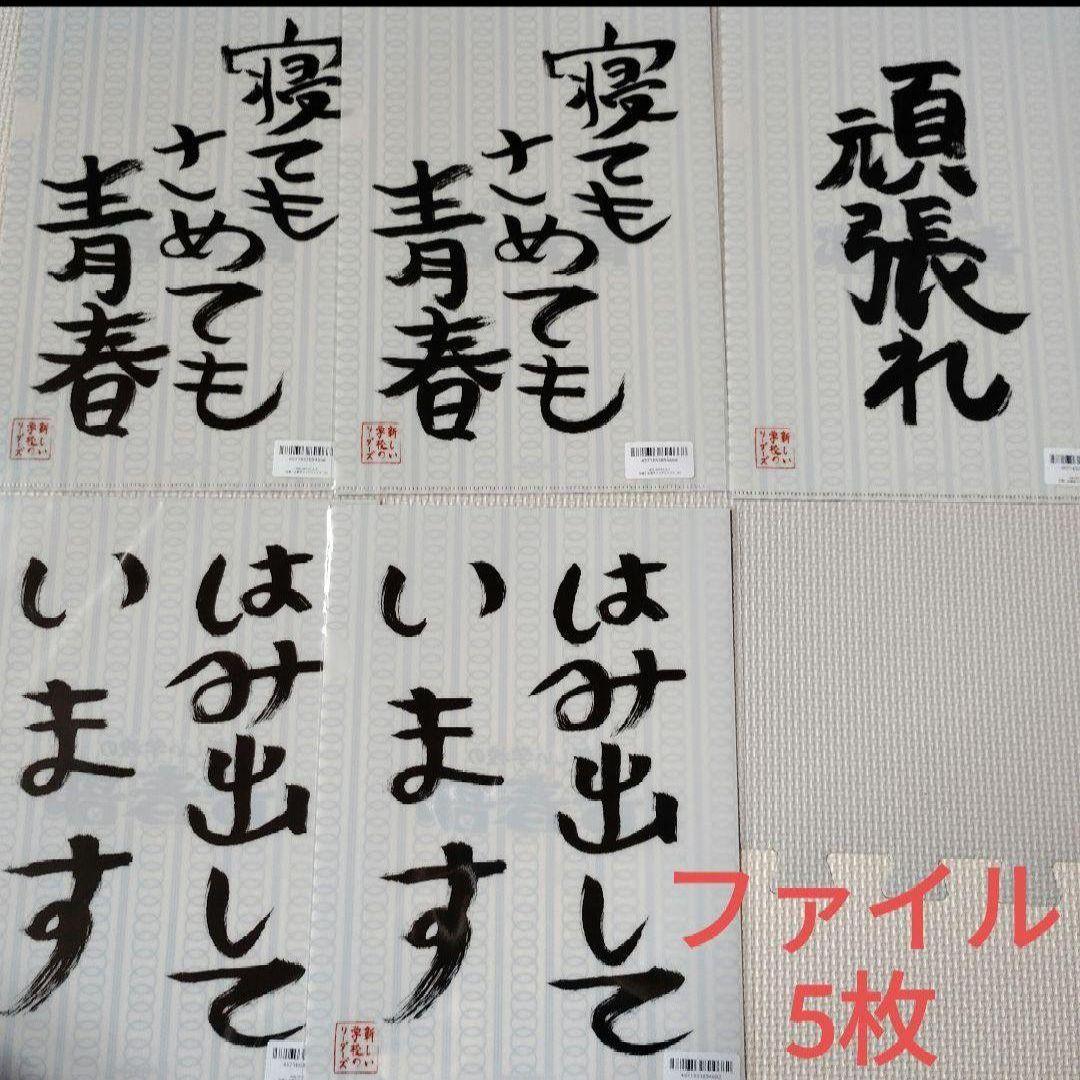 寝ても
さめても
青春
新しい
学校の
リーダーズ
寝ても
さめても
青春
新しい
学校の
リーダーズ
頑張れ
新しい
学校の
リーダーズ
はみ出して
います
はみ出して
います
新しい
学校の
リーダーズ
ファイル
5枚